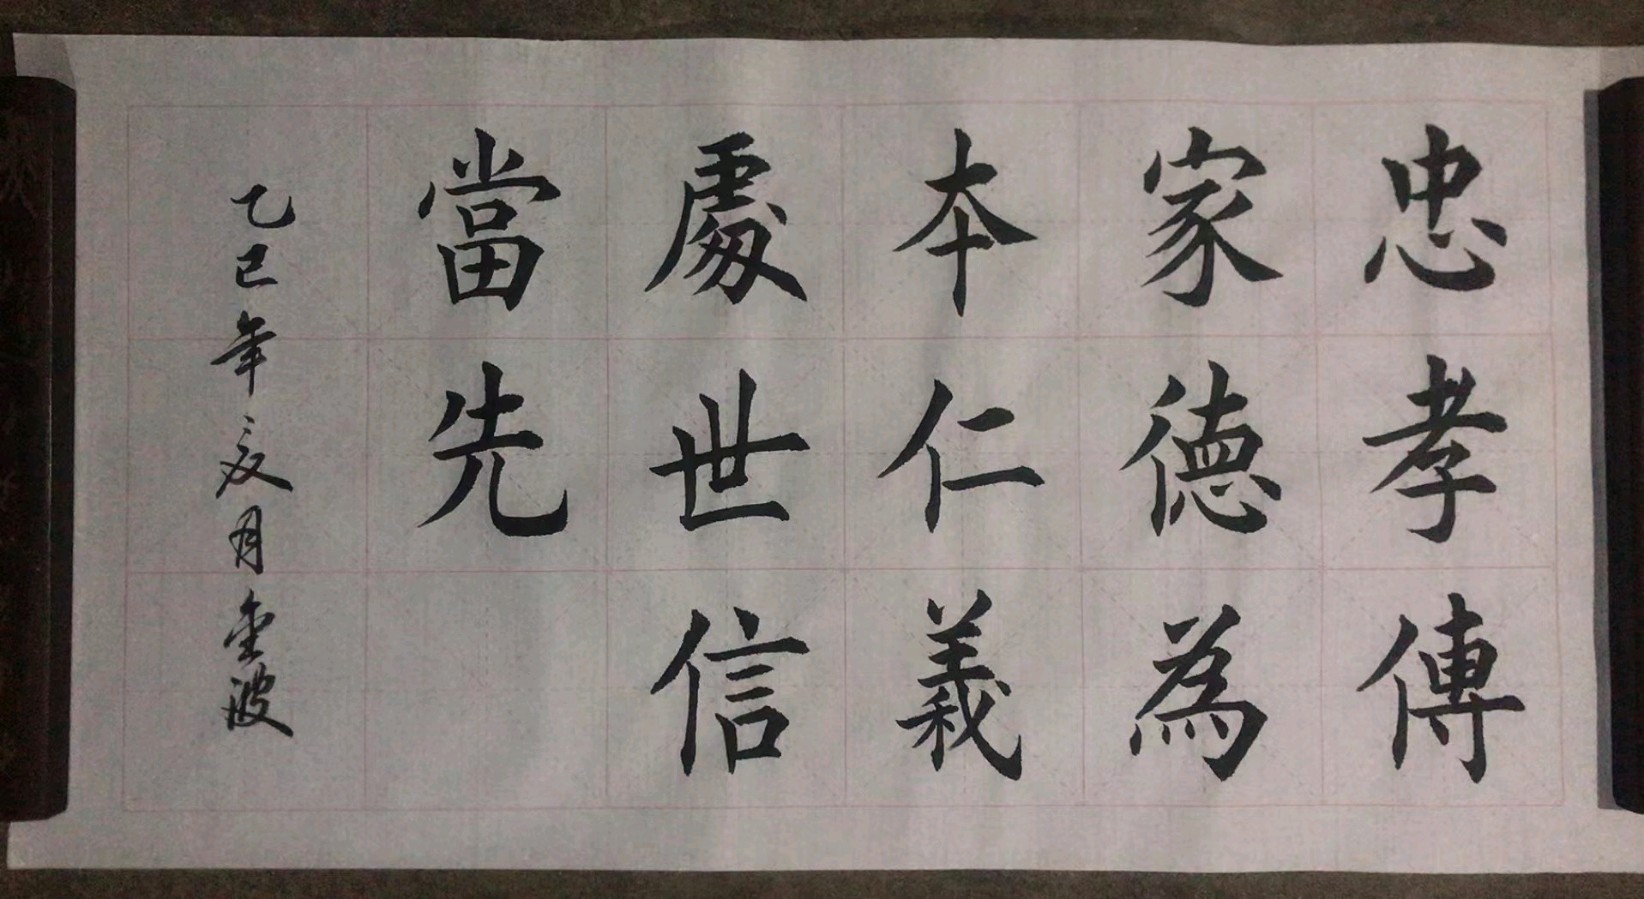 忠孝傳
家德為
本仁義
處世信
當先
乙巳年亥月金波